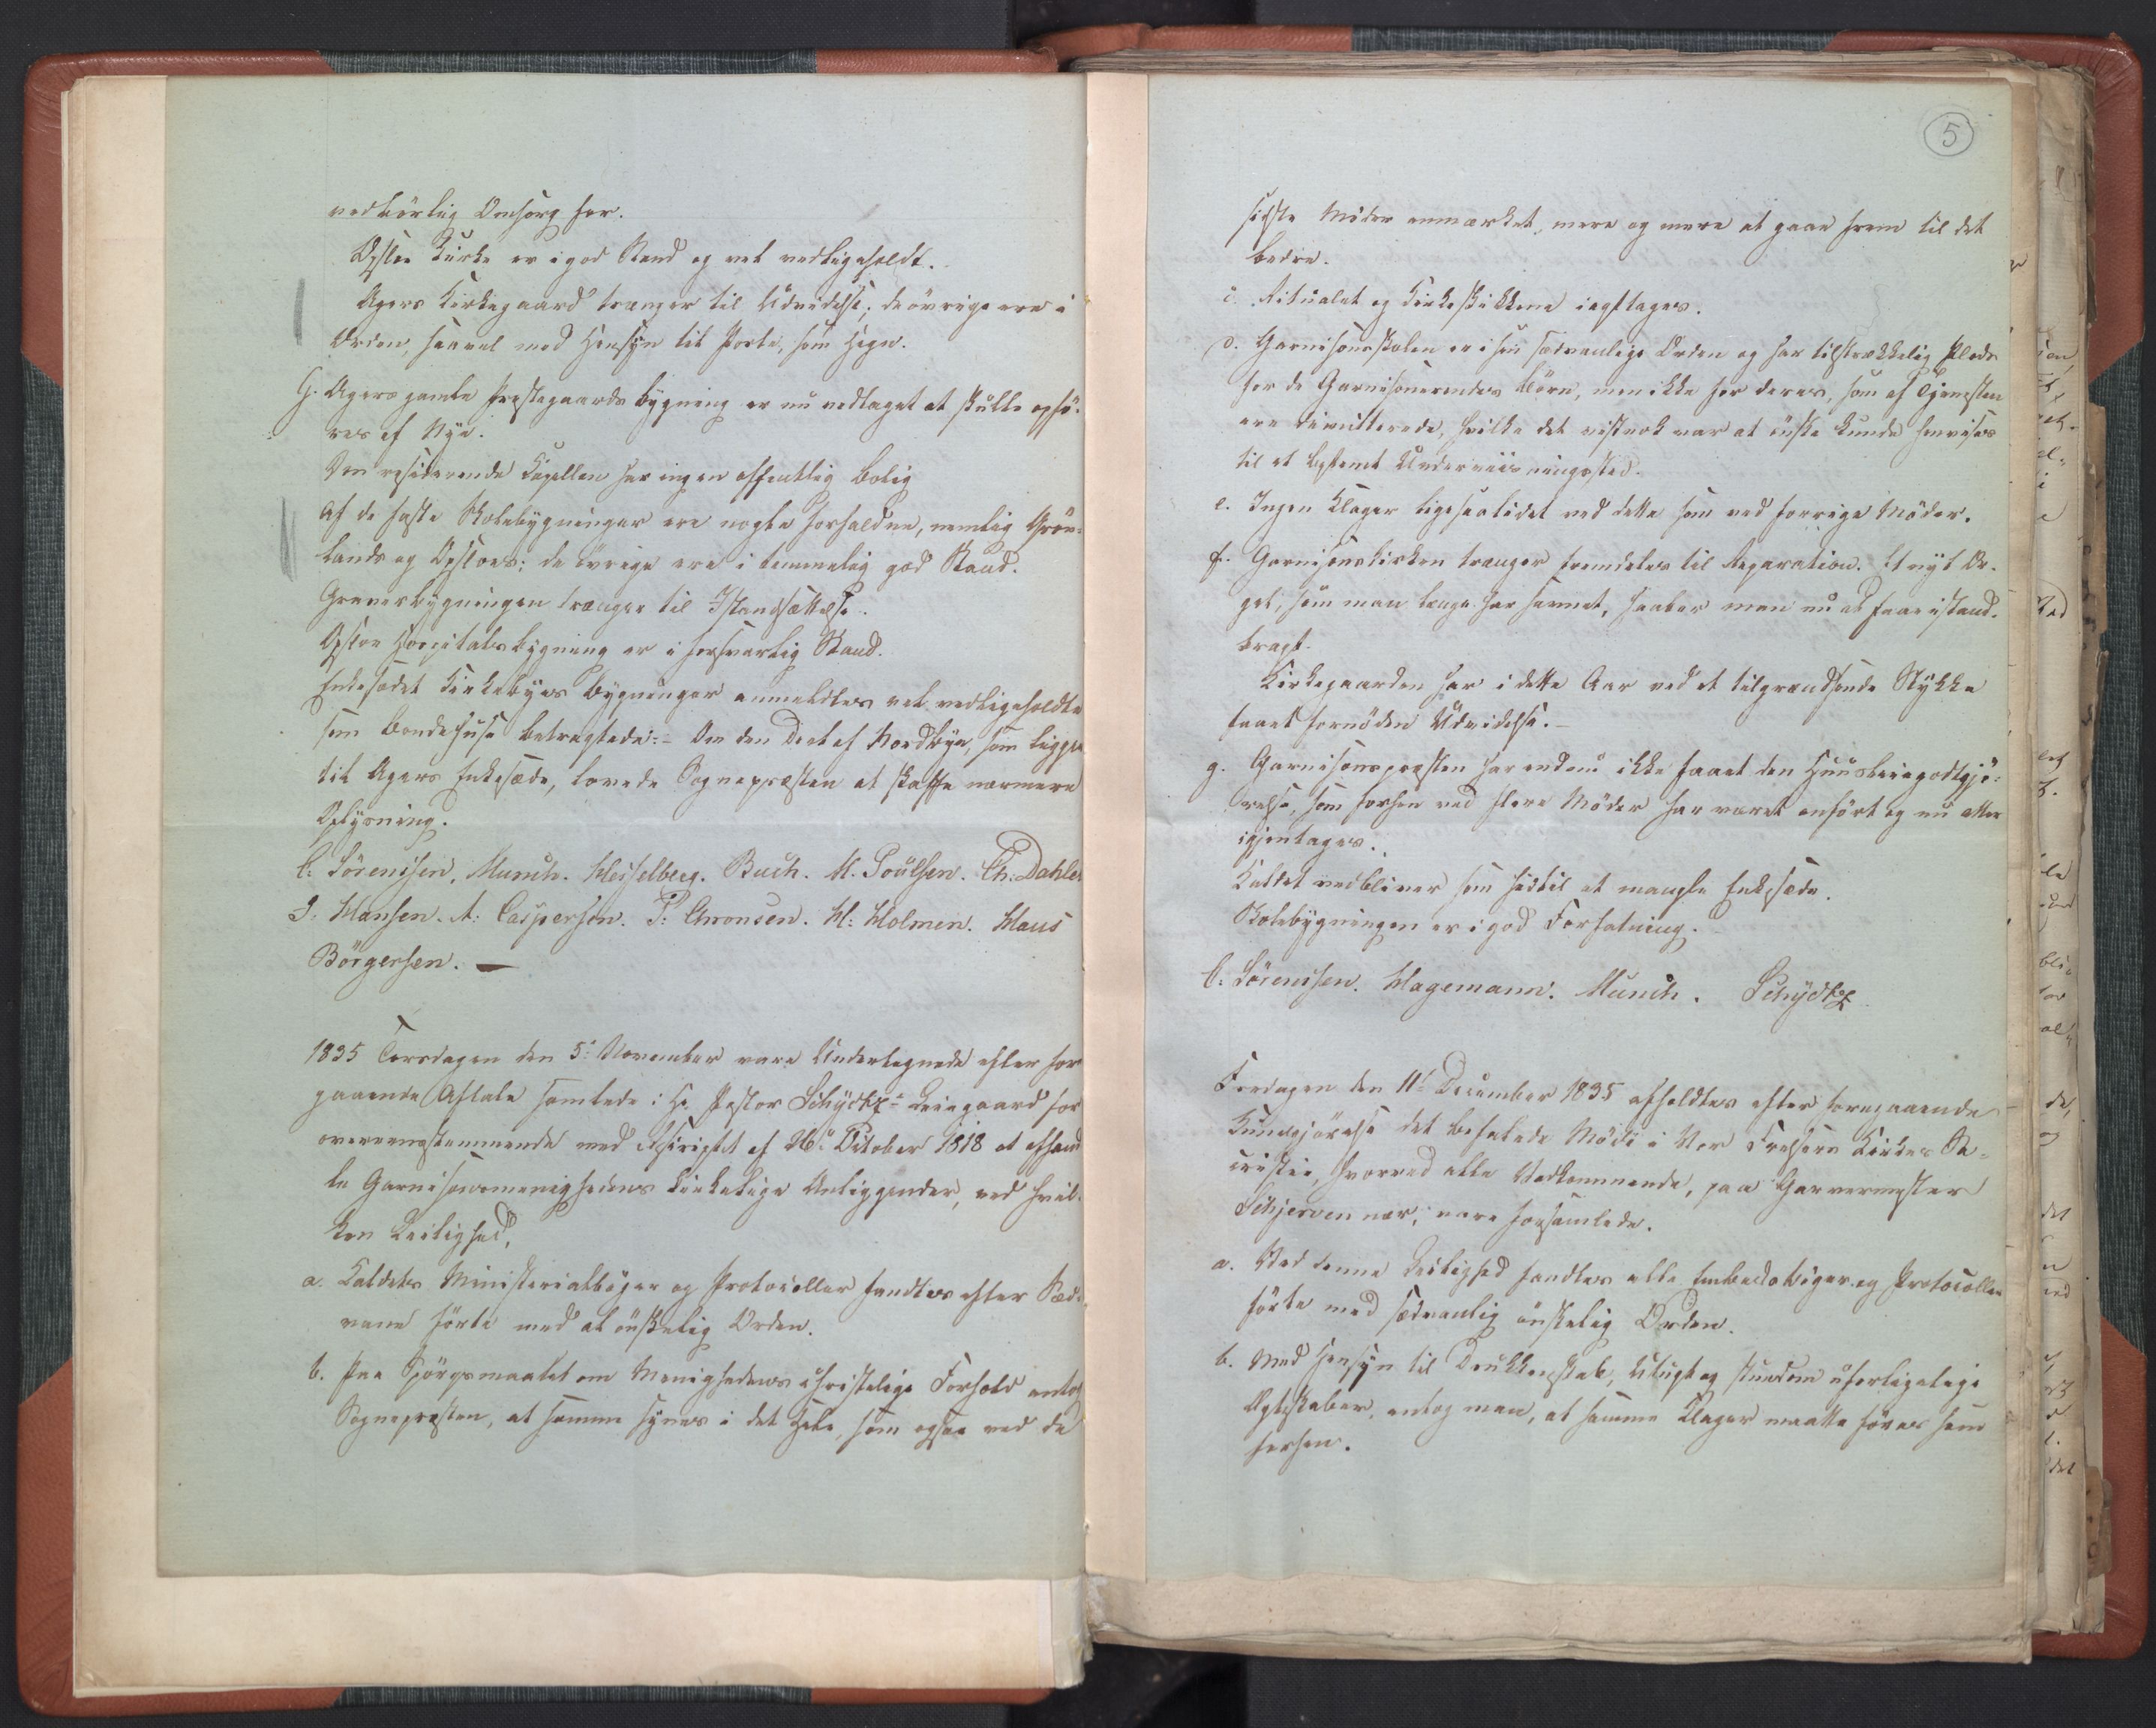 vedbörlig Omsorg for.
Opsloe Kirke er i god Stand og vel vedligeholdt.
Agers Kirkegaard trænger til Udvidelse; de övrige ere i
Orden, saavel med Hensyn til Porte, som Hegn.
G. Agers gamle Præstegaards bygning er nu vedtaget at skulle opfö-
res af Nye.
Den residerende Capellan har ingen offentlig Bolig
Af de faste Skolebygninger ere nogle forfaldne, nemlig Grön-
lands og Opsloes; de övrige ere i temmelig god Stand.
Graverbygningen trænger til Istandsættelse.
Opsloe Hospitals bygning er i forsvarlig Stand.
Enkesædet Kirkebyes bygninger anmeldtes vel vedligeholdte
som Bondehuse betragtede. – Om den Deel af Nordbye, som ligger
til Agers Enkesæde, lovede Sognepræsten at skaffe nærmere
Oplysning.
C. Sörenssen. Munch. Hesselberg. Buch. M. Poulsen. Ch. Dahle
I. Hansen. A. Caspersen. P. Chronsen. H. Holmen. Hans
Börgersen. —
1835 Torsdagen den 5te November vare Undertegnede efter for
gaaende Aftale samlede i Hr Pastor Schydtz's Leiegaard for
overeensstemmende med Rescript af 16de October 1818 at afhand
le Garnisonsmenighedens kirkelige Anliggender, ved hvil-
ken Leilighed,
a. Kaldets Ministerialbøger og Protocoller fandtes efter Sæd-
vane förte med al önskelig Orden.
b. Paa Spörgsmaalet om Menighedens christelige Forhold antog
Sognepræsten, at samme synes i det Hele, som ogsaa ved de
5
sidste Möder anmærket, mere og mere at gaae frem til det
bedre.
c. Ritualet og Kirkeskikkene iagttages.
d. Garnisonsskolen er i sin sædvanlige Orden og har tilstrækkelig Plads
for de Garnisonerendes Börn, men ikke for deres, som af Tjenesten
ere dimitterede, hvilke det vistnok var at önske kunde henvises
til et bestemt Underviisningssted.
e. Ingen Klager ligesaalidet ved dette som ved forrige Möder.
f. Garnisonskirken trænger fremdeles til Reparation. Et nyt Or-
gel, som man længe har savnet, haaber man nu at faae istand-
bragt.
Kirkegaarden har i dette Aar ved et tilgrændsende Stykke
faaet fornöden Udvidelse. –
g. Garnisonspræsten har endnu ikke faaet den Huusleiegodtgjö-
relse, som forhen ved flere Möder har været anfört og nu atter
igjentages.
Kaldet vedbliver som hidtil at mangle Enkesæde.
Skolebygningen er i god Forfatning.
C. Sörenssen. Hagemann. Munch. Schydtz
Fredagen den 11te December 1835 afholdtes efter foregaaende
Kundgjörelse det befalede Möde i Vor Frelsers Kirkes Sa-
cristie, hvorved alle Vedkommende, paa Garvermester
Schjerven nær, vare forsamlede.
a. Ved denne Leilighed fandtes alle Embedsböger og Protocoller
förte med sædvanlig önskelig Orden.
b. Med Hensyn til Drukkenskab, Utugt og stundom uforligelige
Ægteskaber, antog man, at samme Klager maatte föres som
forhen.